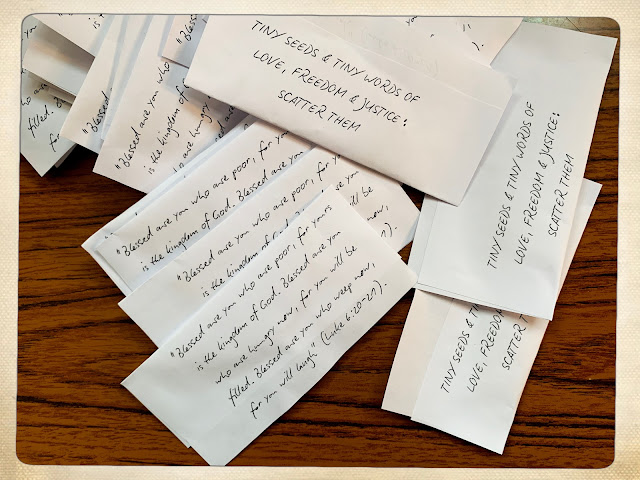 TINY SEEDS & TINY WORDS OF
LOVE, FREEDOM & JUSTICE:
SCATTER THEM
TINY SEEDS & TINY WORDS OF
LOVE, FREEDOM & JUSTICE:
SCATTER THEM
TINY SEEDS & T
LOVE, FREEDO
SCATTER
"Blessed are you who
is the kingdom of G
who are hungry
"Blessed are you who are poor, for you
is the kingdom of God. Blessed are you
"Blessed are you who are poor, for yours
is the kingdom of God. Blessed are you
"Blessed are you who are poor, for yours
is the kingdom of God. Blessed are you
who are hungry now, for you will be
filled. Blessed are you who weep now,
for you will laugh" (Luke 6:20-21).